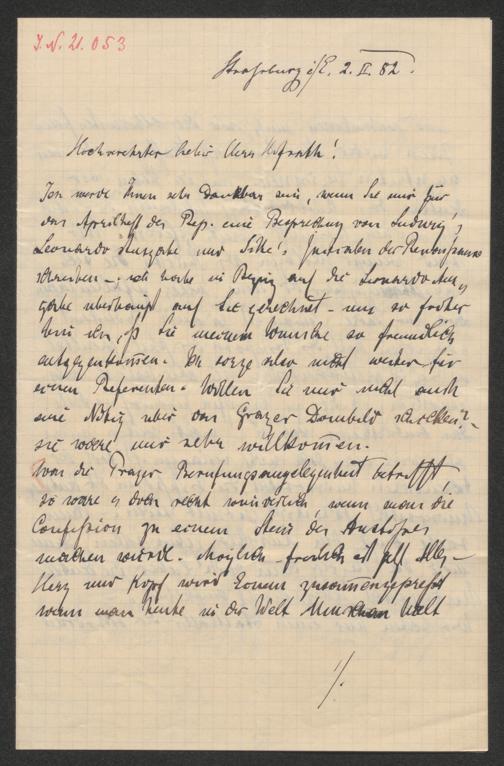 I.N. 21.053
Strassburg i/E. 2. II. 82.
Hochverehrter lieber Herr Hofrath!
Ich werde Ihnen sehr dankbar sein, wenn Sie mir für
das Aprilheft des Rep. eine Besprechung von Ludwig's
Leonardo Ausgabe und Initialen der Renaissance
schreiben – ich hatte in Bezug auf die Leonardo Aus„
gabe überhaupt auf Sie gerechnet – um so froher
bin ich, dß Sie meinem Wunsche so freundlich
entgegenkommen. Ich sorge also nicht weiter für
einen Referenten. Wollen Sie mir nicht auch
eine Notiz über das Grazer Dombild schicken? –
sie wäre mir sehr willkommen.
Was die Prager Berufungsangelegenheit betrifft
so wäre es doch recht wenn man die
Confession zu einem Stein des Anstoßes
machen würde. Möglich freilich ist jetzt Alles –
Herz und Kopf wird Einem zusammengepreßt
wenn man heute in der Welt Umschau hält
./.